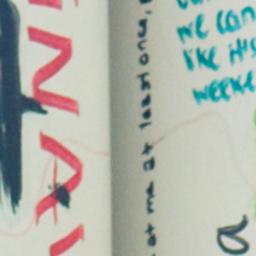 INA
at me at least once,
we can
like it's
weeke
a